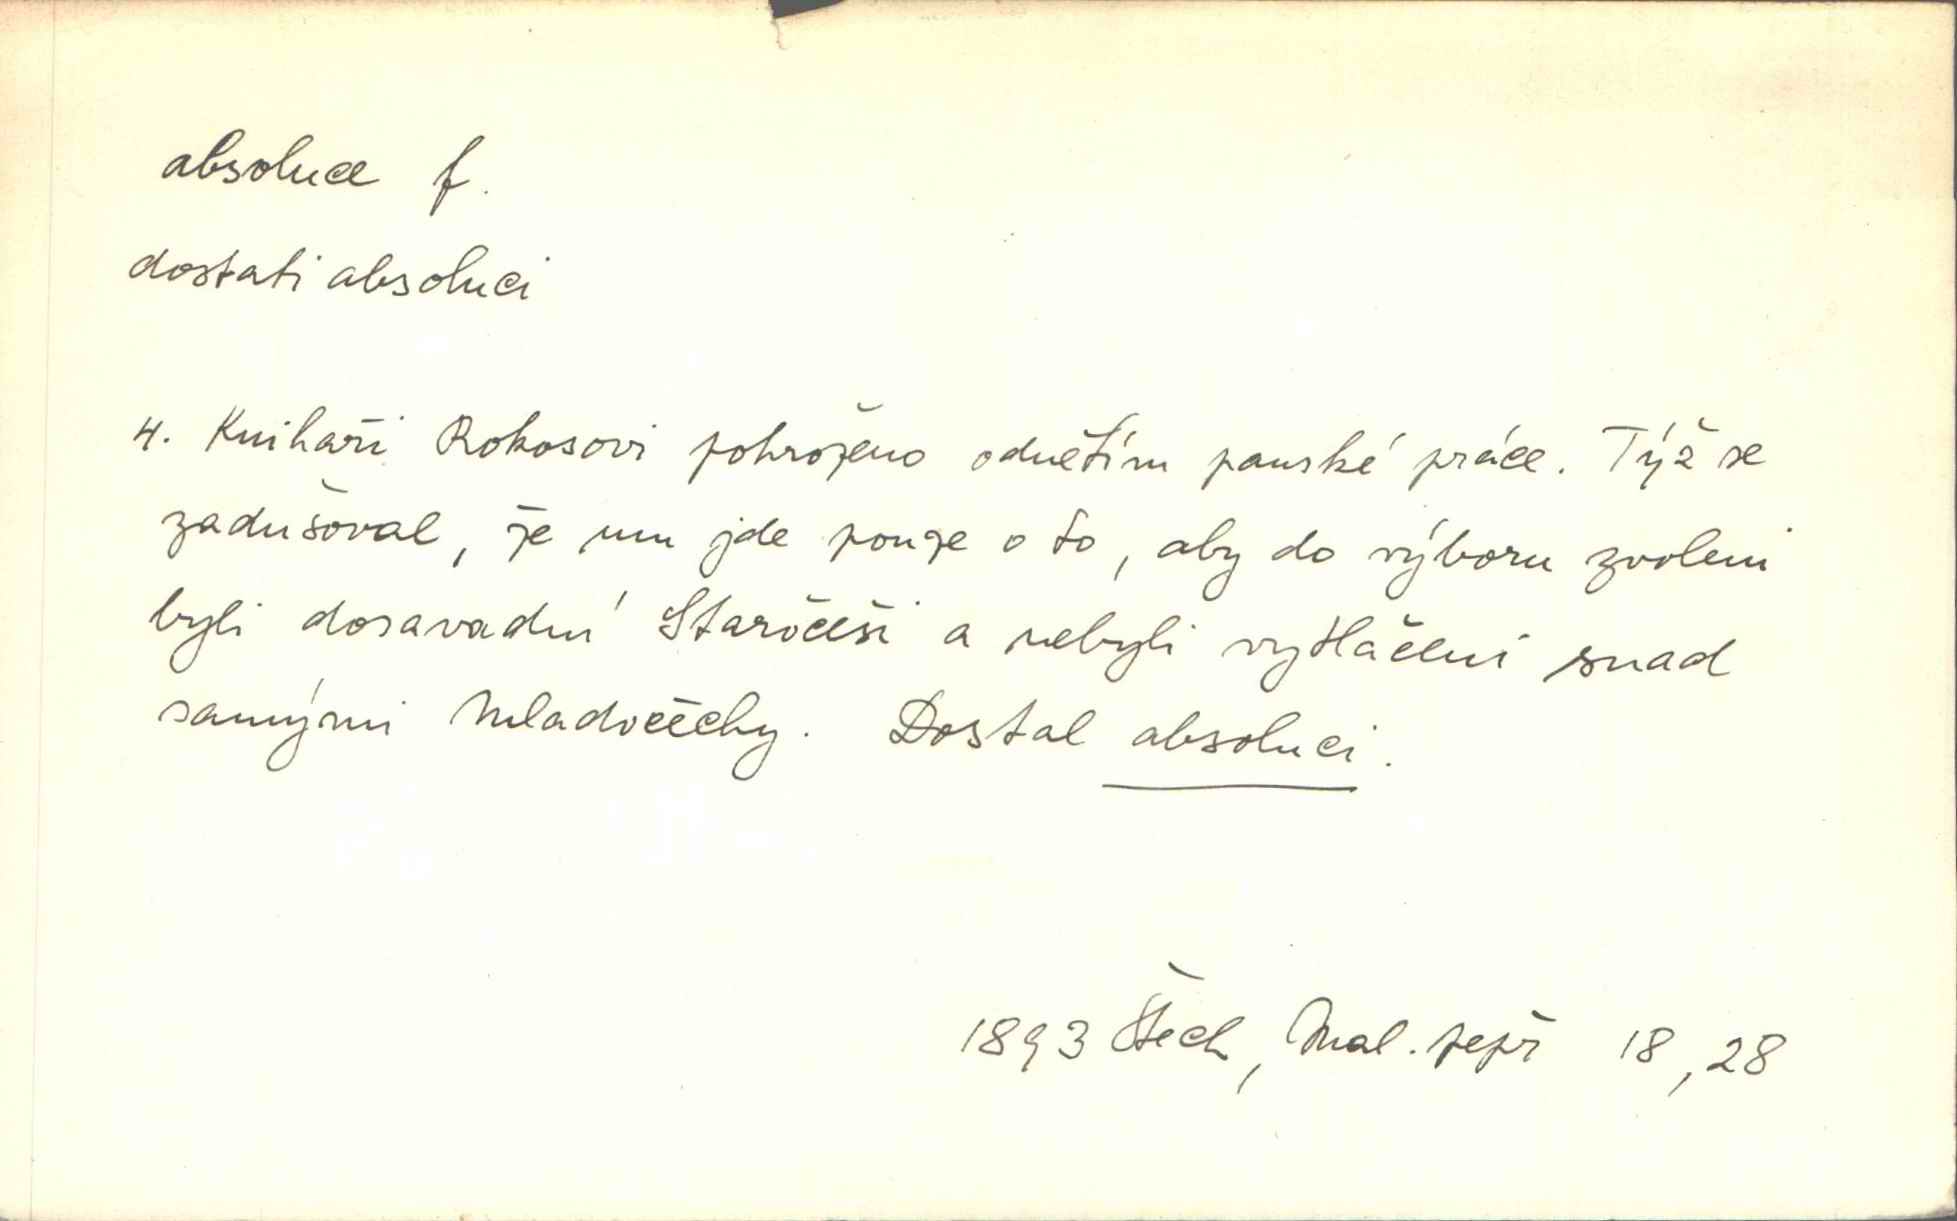 absoluce f.
dostati absoluci
4. Knihaři Rokosovi pohroženo odnětím panské práce. Týž se
zadušoval, že mu jde pouze o to, aby do výboru zvoleni
byli dosavadní Staročeši a nebyli vytlačeni snad
samými Mladočechy. Dostal absoluci.
1893 Štech, Mal. pepř 18, 28